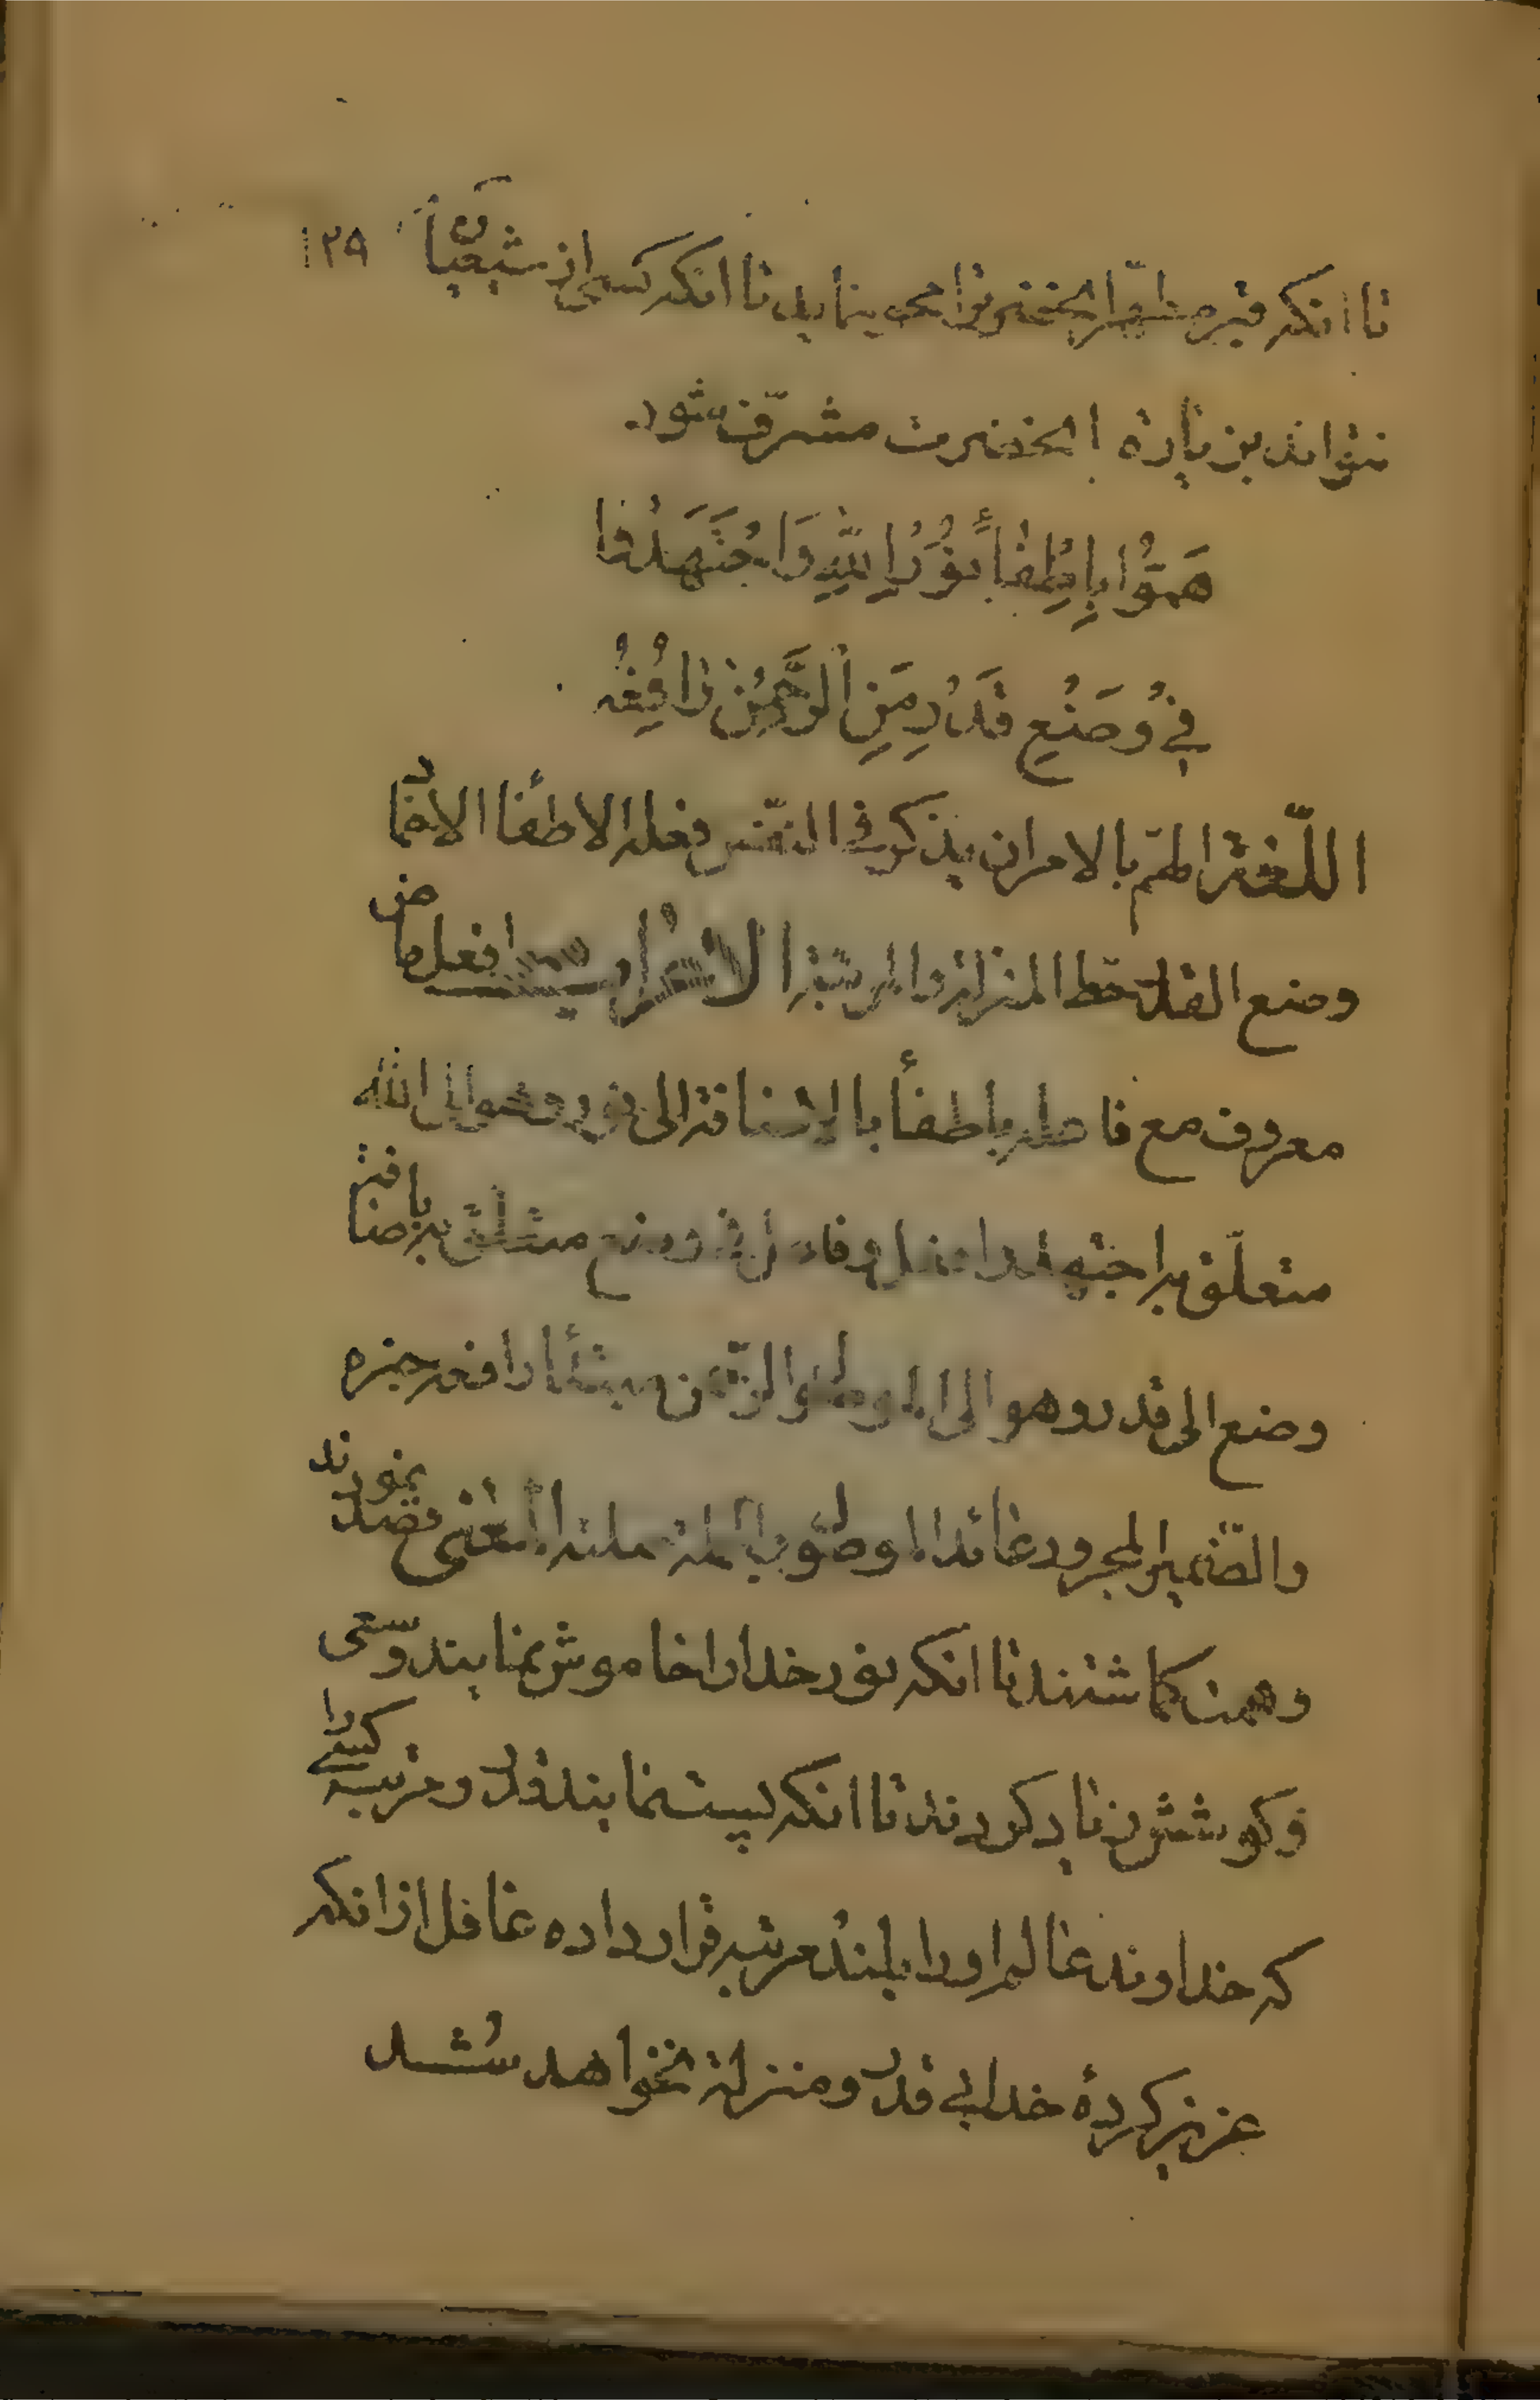 ۱۲۹
تا انکه قبر مطهّر انحضرترا محو ینماید تا انکه کسی از شیعیان
نتواند بزیارة انحضرت مشرّف شود
هَمّوُا بِاِطْفأِ نوُرِ اللّهِ وَاجْتَهَدُوا
فی وَضْعِ قَدْرٍ مَنِ الرَّحْمنُ رافِعُهُ
اللّغة الهمّ بالامر ان یذکر فی النفس فعله الاطفا الاخماد
وضع القدر حط المنزلة والمرتبة الاعراب همّوا فعل ماض
معروف مع فاعله باطفأ بالاضافة الی نور وهو الی الله
متعلّق به اجتهدوا فعل وفاعل فی وضع متعلق به باضافة
وضع الی قدر وهو الی الموصول والرّحمن مبتدأ رافعه خبره
والضّمیر المجرور عائد الموصول بالجملة صلته المعنی قصد نمودند
وهمت کماشتند تا انکه نور خدا را خاموش نمایند وسعی
وکوشش زیاد کردند تا انکه پست نمایند قدر ومرتبه کسی را
که خداوند عالم اورا بلند مرتبه قرار داده غافل از انکه
عزیز کردۀ خدا بی قدر ومنزلة نخواهد شد